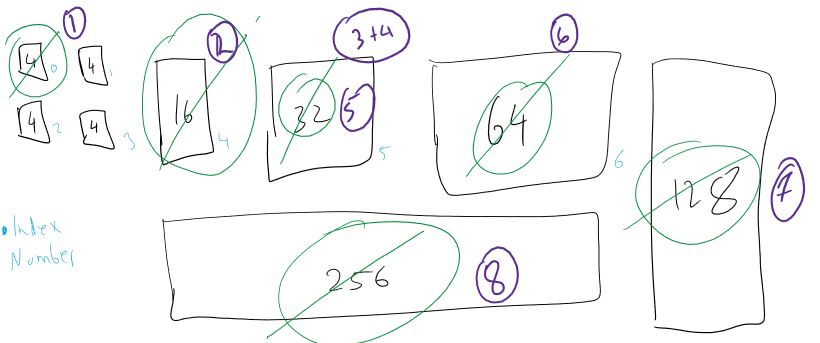 1
4 0
4 1
4 2
4 3
2
16 4
3+4
32 5
5
6
64
6
128 7
• Index
Number
256 8